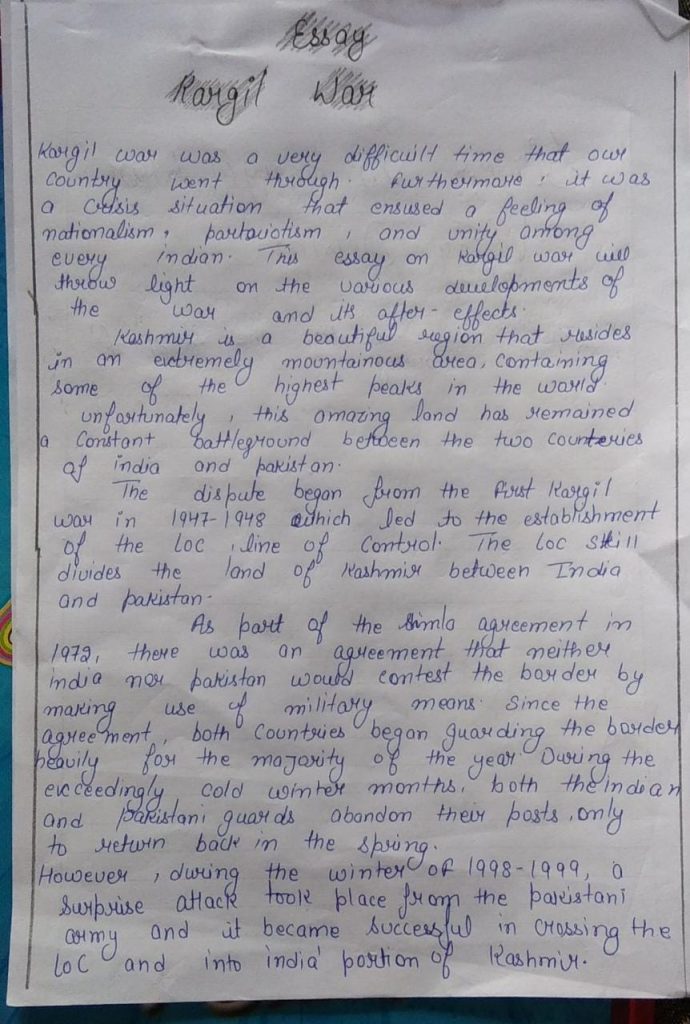 Essay
Kargil War
Kargil war was a very difficuilt time that our
country went through. Furthermore, it was
a crisis situation that ensused a feeling of
nationalism, partouiotism, and unity among
every indian. This essay on Kargil war will
throw light on the various developments of
the war and its after-effects.
Kashmir is a beautiful region that resides
in an extremely mountainous area, containing
some of the highest peaks in the world.
unfortunately, this amazing land has remained
a constant battleground between the two counteries
of india and pakistan.
The dispute began from the first Kargil
war in 1947-1948 which led to the establishment
of the LOC, line of control. The LOC still
divides the land of Kashmir between India
and pakistan.
As part of the Simla agreement in
1972, there was an agreement that neither
india nor pakistan would contest the border by
making use of military means. Since the
agreement, both countries began guarding the border
heavily for the majority of the year. During the
exceedingly cold winter months, both the indian
and pakistani guards abandon their posts, only
to return back in the spring.
However, during the winter of 1998-1999, a
surprise attack took place from the pakistani
army and it became successful in crossing the
LOC and into india' portion of Kashmir.